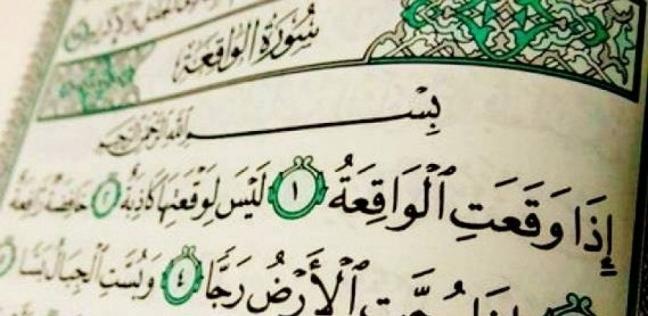 سُورَةُ الوَاقِعَةِ
بِسْمِ ٱللَّهِ ٱلرَّحْمَٰنِ ٱلرَّحِيمِ
إِذَا وَقَعَتِ ٱلْوَاقِعَةُ ١ لَيْسَ لِوَقْعَتِهَا كَاذِبَةٌ ٢ خَافِضَةٌ رَّافِعَةٌ
رُجَّتِ ٱلْأَرْضُ رَجًّا ٤ وَبُسَّتِ ٱلْجِبَالُ بَسًّا